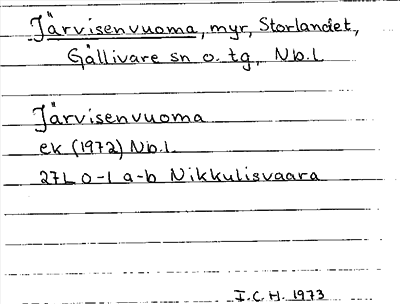 Järvisenvuoma, myr, Storlandet,
Gällivare sn o. tg, Nb.l
Järvisenvuoma
ek (1972) Nb.l.
27L 0-1 a-b Nikkulisvaara
I.C.H. 1973